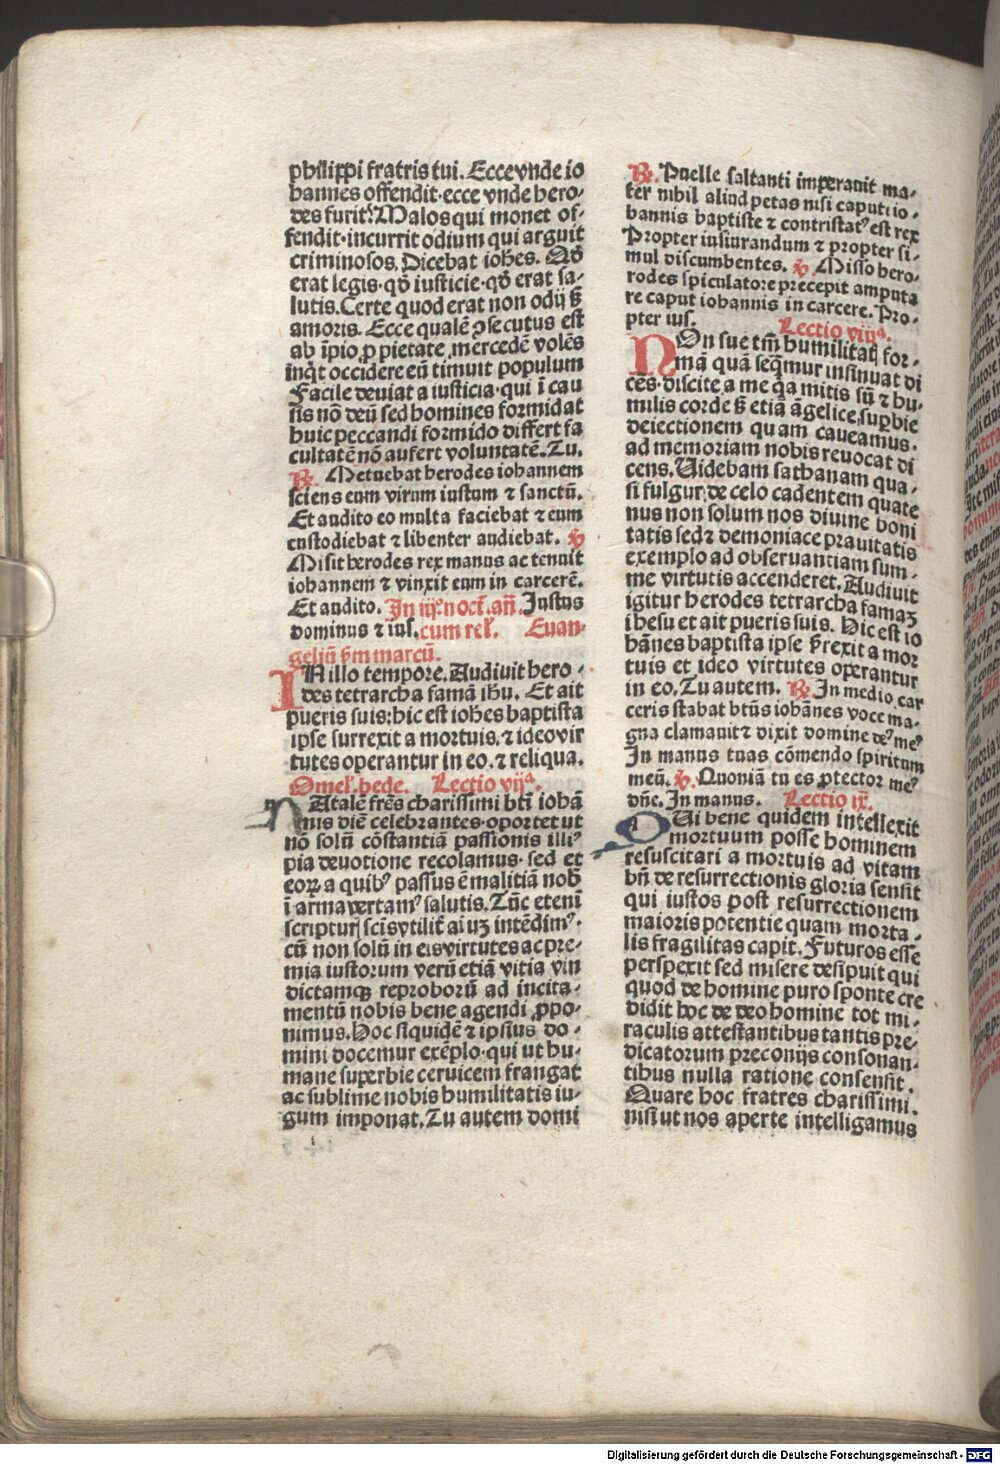 philippi fratris tui. Ecce vnde io
hannes offendit·ecce vnde hero-
des furit? Malos qui monet of-
fendit·incurrit odium qui arguit
criminosos. Dicebat ioh̄es. Qd̄
erat legis·qd̄ iusticie·qd̄ erat sa-
lutis. Certe quod erat non odij ß
amoris. Ecce qualē ꝯsecutus est
ab īpio, ꝓ pietate, mercedē volēs
inq̇t occidere eū timuit populum
Facile deuiat a iusticia·qui ī cau
sis nō deū sed homines formidat
huic peccandi formido differt fa
cultatē nō aufert voluntatē. Tu.
℟. Metuebat herodes iohannem
sciens eum virum iustum ⁊ sanctū.
Et audito eo multa faciebat ⁊ eum
custodiebat ⁊ libenter audiebat. ℣
Misit herodes rex manus ac tenuit
iohannem ⁊ vinxit eum in carcerē.
Et audito. In iij. noct̄. an̄. Iustus
dominus ⁊ ius. cum rel̄. Euan-
geliū ẜm marcū.
IN illo tempore. Audiuit hero-
des tetrarcha famā ihū. Et ait
pueris suis: hic est ioh̄es baptista
ipse surrexit a mortuis. ⁊ ideo vir
tutes operantur in eo. ⁊ reliqua.
Omel̄. bede. Lectio vijᵃ.
NAtalē fr̄es charissimi bt̄i iohā
nis diē celebrantes·oportet ut
nō solū cōstantiā passionis illiꝰ
pia deuotione recolamus· sed et
eoꝝ a quibꝰ passus ē malitiā nob̄
ī arma vertamꝰ salutis. Tūc etenī
scripturꝭ scīs vtilit̄ aīuꝫ intēdimꝰ·
cū non solū in eis virtutes ac pre-
mia iustorum verū etiā vitia vin
dictamqꝫ reproborū ad incita-
mentū nobis bene agendi ꝓpo-
nimus. Hoc siquidē ⁊ ipsius do-
mini docemur exēplo·qui ut hu-
mane superbie ceruicem frangat
ac sublime nobis humilitatis iu-
gum imponat. Tu autem domi
℟. Puelle saltanti imperauit ma-
ter nihil aliud petas nisi caput io-
hannis baptiste ⁊ contristatꝰ est rex
Propter iusiurandum ⁊ propter si-
mul discumbentes. ℣. Misso hero-
rodes spiculatore precepit amputa
re caput iohannis in carcere. Pro-
pter ius. Lectio viijᵃ.
NOn sue tm̄ humilitatꝭ for-
mā quā seq̄mur insinuat di
cēs·discite a me q̇a mitis sū ⁊ hu-
milis corde ß etiā āgelice, suꝑbie
deiectionem quam caueamus·
ad memoriam nobis reuocat di
cens. Uidebam sathanam qua-
si fulgur, de celo cadentem quate
nus non solum nos diuine boni
tatis sed ⁊ demoniace prauitatis
exemplo ad obseruantiam sum-
me virtutis accenderet. Audiuit
igitur herodes tetrarcha famaꝫ
ihesu et ait pueris suis. Hic est io
hānes baptista ipse ẜrexit a mor
tuis et ideo virtutes operantur
in eo. Tu autem. ℟. In medio car
ceris stabat bt̄us iohānes voce ma-
gna clamauit ⁊ dixit domine deꝰ meꝰ
In manus tuas cōmendo spiritum
meū. ℣. Quoniā tu es ꝓtector meꝰ
dn̄e. In manus. Lectio ix.
QUi bene quidem intellexit
mortuum posse hominem
resuscitari a mortuis ad vitam
bn̄ de resurrectionis gloria sensit
qui iustos post resurrectionem
maioris potentie quam morta-
lis fragilitas capit. Futuros esse
perspexit sed misere desipuit qui
quod de homine puro sponte cre
didit hoc de deo homine tot mi-
raculis attestantibus tantis pre-
dicatorum preconijs consonan-
tibus nulla ratione consensit.
Quare hoc fratres charissimi.
nisi ut nos aperte intelligamus
Digitalisierung gefördert durch die Deutsche Forschungsgemeinschaft - DFG